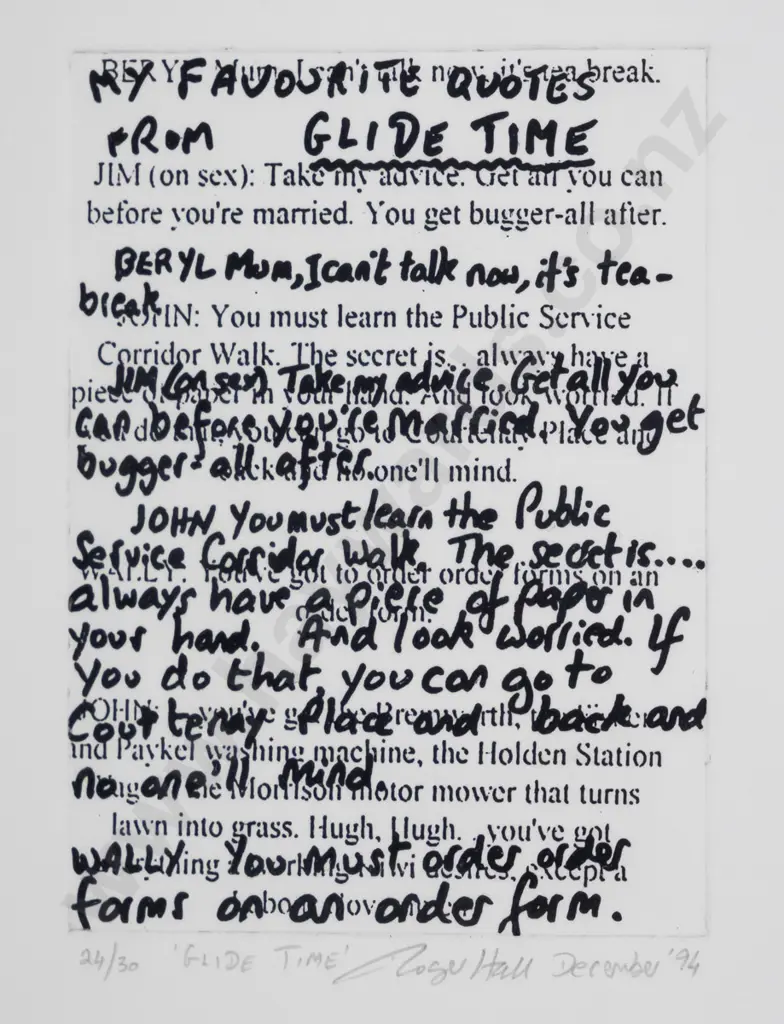 MY FAVOURITE QUOTES
BERYL: Mum, I can't talk now, it's tea break.
FROM GLIDE TIME
JIM (on sex): Take my advice. Get all you can
before you're married. You get bugger-all after.
BERYL Mum, I can't talk now, it's tea-
break
JOHN: You must learn the Public Service
Corridor Walk. The secret is... always have a
JIM (on sex) Take my advice. Get all you
piece of paper in your hand. And look worried. If
can before you're married. You get
you do that, you can go to Courtenay Place and
bugger-all after.
back and no one'll mind.
JOHN You must learn the Public
Service Corridor Walk. The secret is....
WALLY: You've got to order order forms on an
always have a piece of paper in
order form.
your hand. And look worried. If
you do that, you can go to
Courtenay Place and back and
JOHN: you've got the Bremworth,
and Paykel washing machine, the Holden Station
no one'll mind.
Wagon, the Morrison motor mower that turns
lawn into grass. Hugh, Hugh... you've got
WALLY You must order order
everything a working Kiwi desires, except a
forms on an order form.
24/30 'GLIDE TIME' Roger Hall December '94